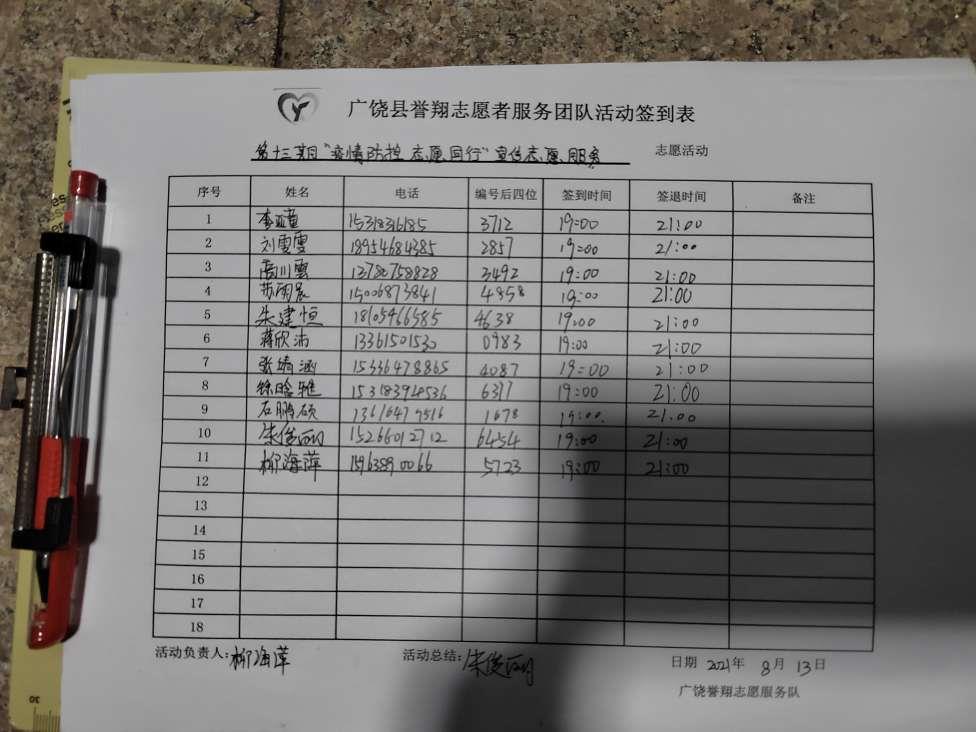 广饶县誉翔志愿者服务团队活动签到表
第十三期"疫情防控 志愿同行"宣传志愿服务 志愿活动
序号 姓名 电话 编号后四位 签到时间 签退时间 备注
1 李亚萱 15318316185 3712 19:00 21:00
2 刘雯雯 18954684385 2857 19:00 21:00
3 13780758828 3492 19:00 21:00
4 苏雨晨 15006873841 4858 19:00 21:00
5 朱建恒 18105466585 4638 19:00 21:00
6 蒋欣沛 13361501530 0983 19:00 21:00
7 张靖涵 15336478865 4087 19:00 21:00
8 徐晗雅 15318394536 6317 19:00 21:00
9 石鹏硕 1678 19:00 21:00
10 宋俊丽 15266012712 6454 19:00 21:00
11 柳海萍 5723 19:00 21:00
12
13
14
15
16
17
18
活动负责人:柳海萍 活动总结:宋俊丽 日期 2021年 8月 13日
广饶誉翔志愿服务队
30